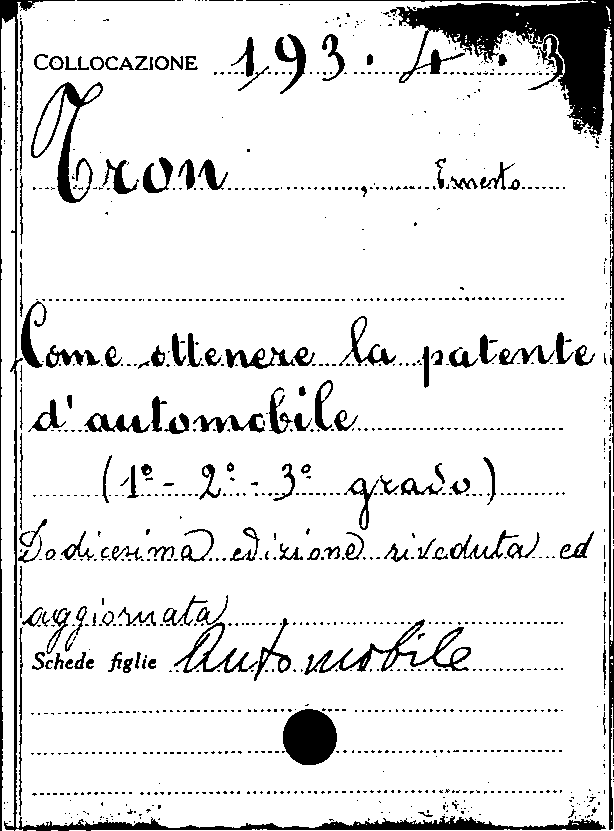 COLLOCAZIONE 193. 4. 3
Tron, Ernesto
Come ottenere la patente
d'automobile
(1º - 2º - 3º grado)
Dodicesima edizione riveduta ed
aggiornata
Schede figlie Automobile